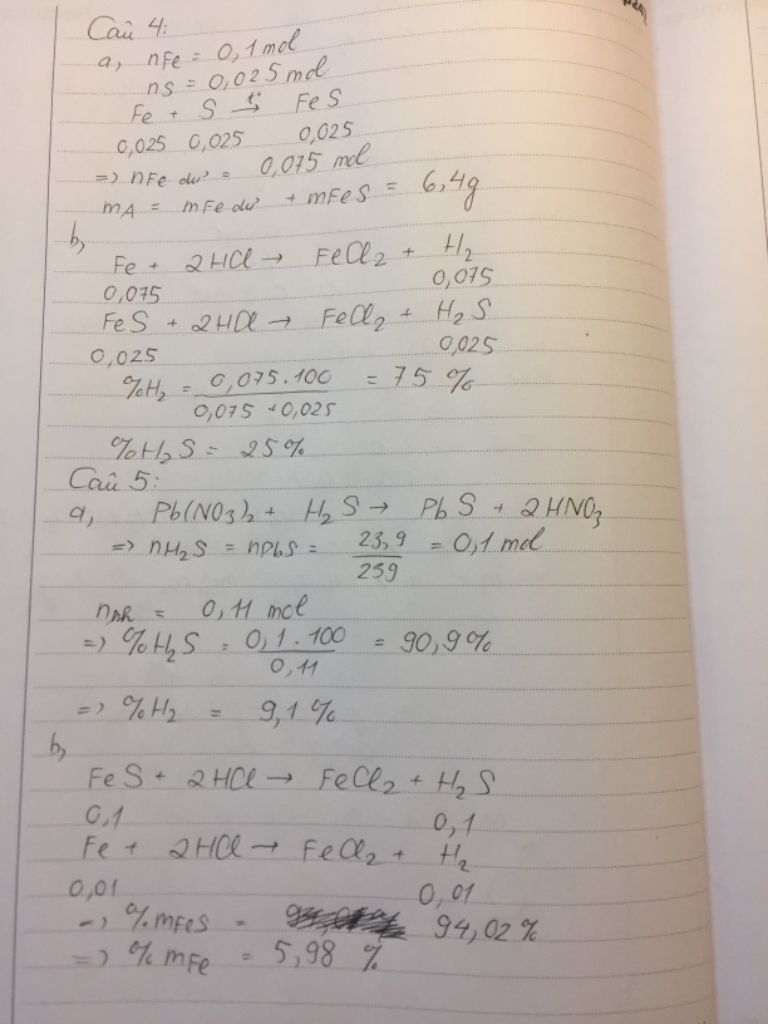 Câu 4:
a, nFe = 0,1 mol
nS = 0,025 mol
Fe + S →t° FeS
0,025 0,025 0,025
=> nFe dư = 0,075 mol
mA = mFe dư + mFeS = 6,4g
b,
Fe + 2HCl → FeCl2 + H2
0,075 0,075
FeS + 2HCl → FeCl2 + H2S
0,025 0,025
%H2 = 0,075.100 / 0,075 + 0,025 = 75 %
%H2S = 25%
Câu 5:
a, Pb(NO3)2 + H2S → PbS + 2HNO3
=> nH2S = nPbS = 23,9 / 239 = 0,1 mol
= 0,11 mol
=> %H2S = 0,1.100 / 0,11 = 90,9%
=> %H2 = 9,1%
b,
FeS + 2HCl → FeCl2 + H2S
0,1 0,1
Fe + 2HCl → FeCl2 + H2
0,01 0,01
=> %mFeS = 94,02%
=> %mFe = 5,98 %